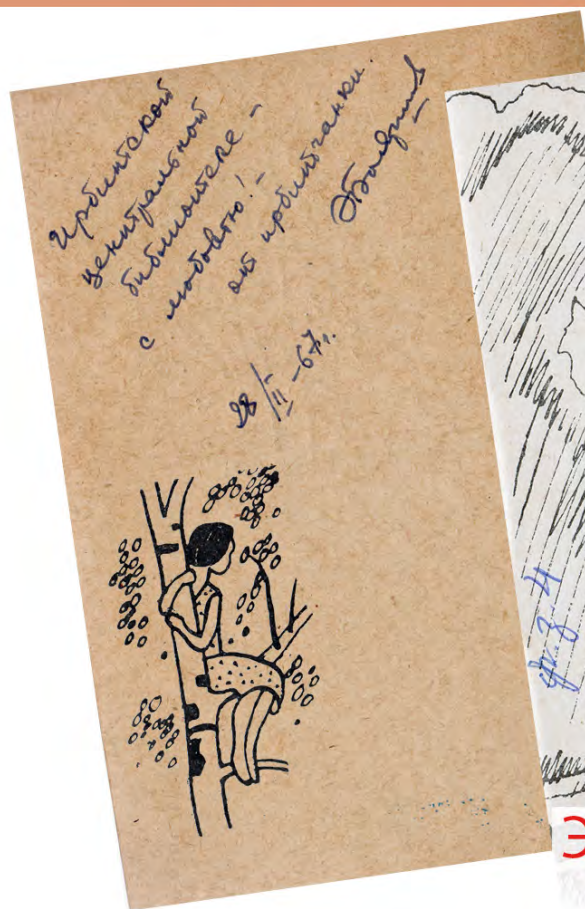 Ирбитской
центральной
библиотеке –
с любовью! –
от ирбитчанки.
28/II –67г.
Э